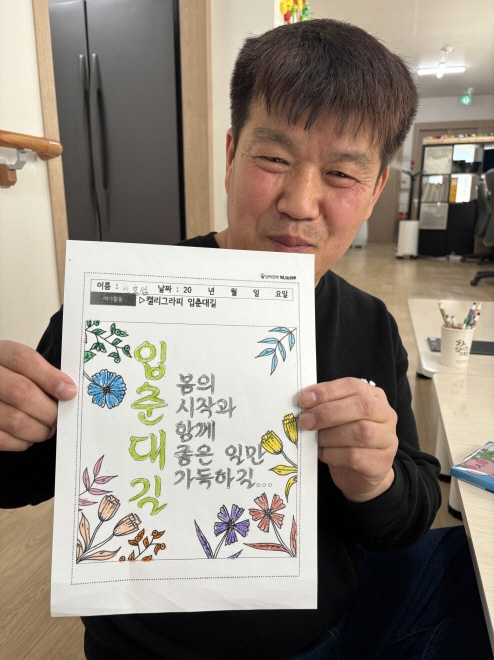 이름 : 날짜 : 20 년 월 일 요일
여가활동 ▷캘리그라피 입춘대길
입춘대길
봄의
시작과
함께
좋은 일만
가득하길...